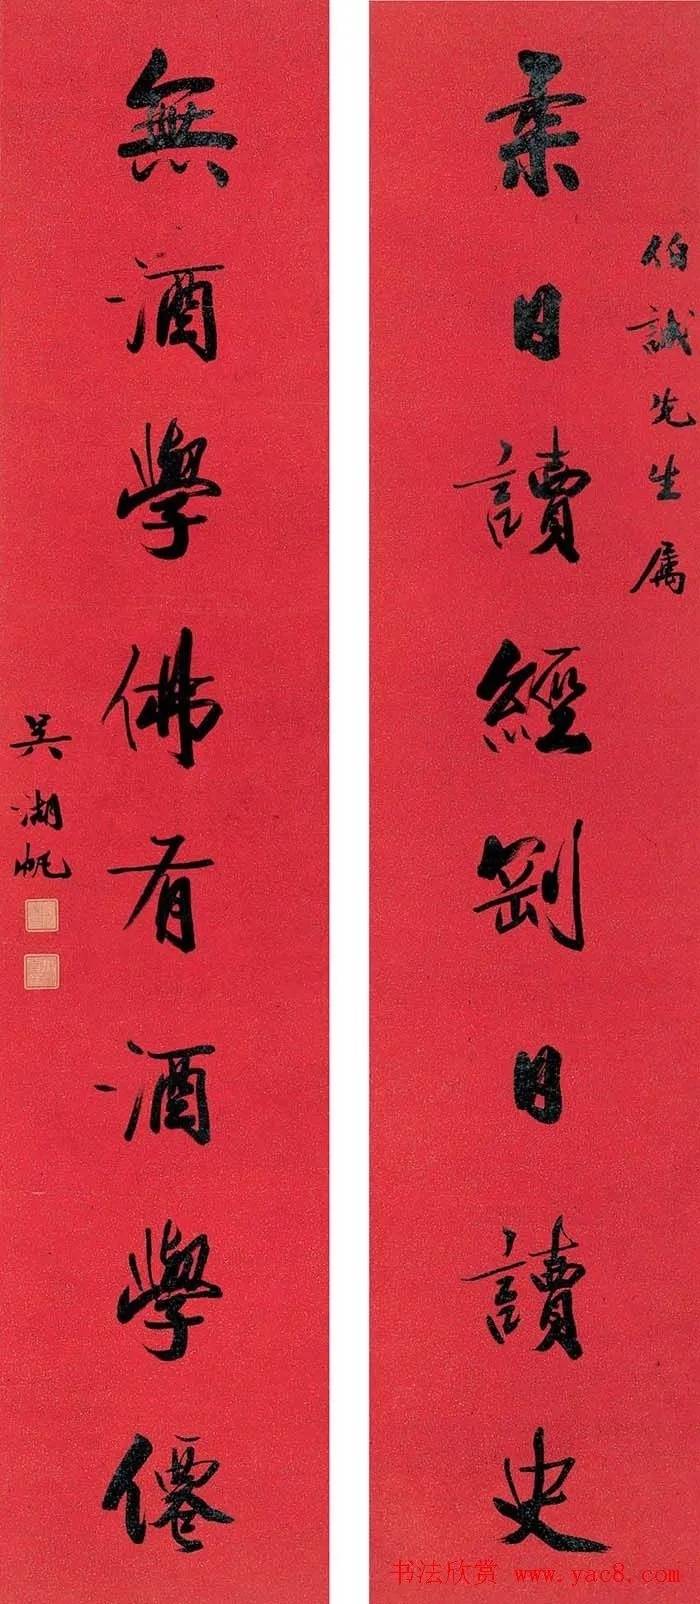 伯誠先生属
柔日讀經剛日讀史
無酒學佛有酒學僊
吳湖帆
书法欣赏 www.yac8.com